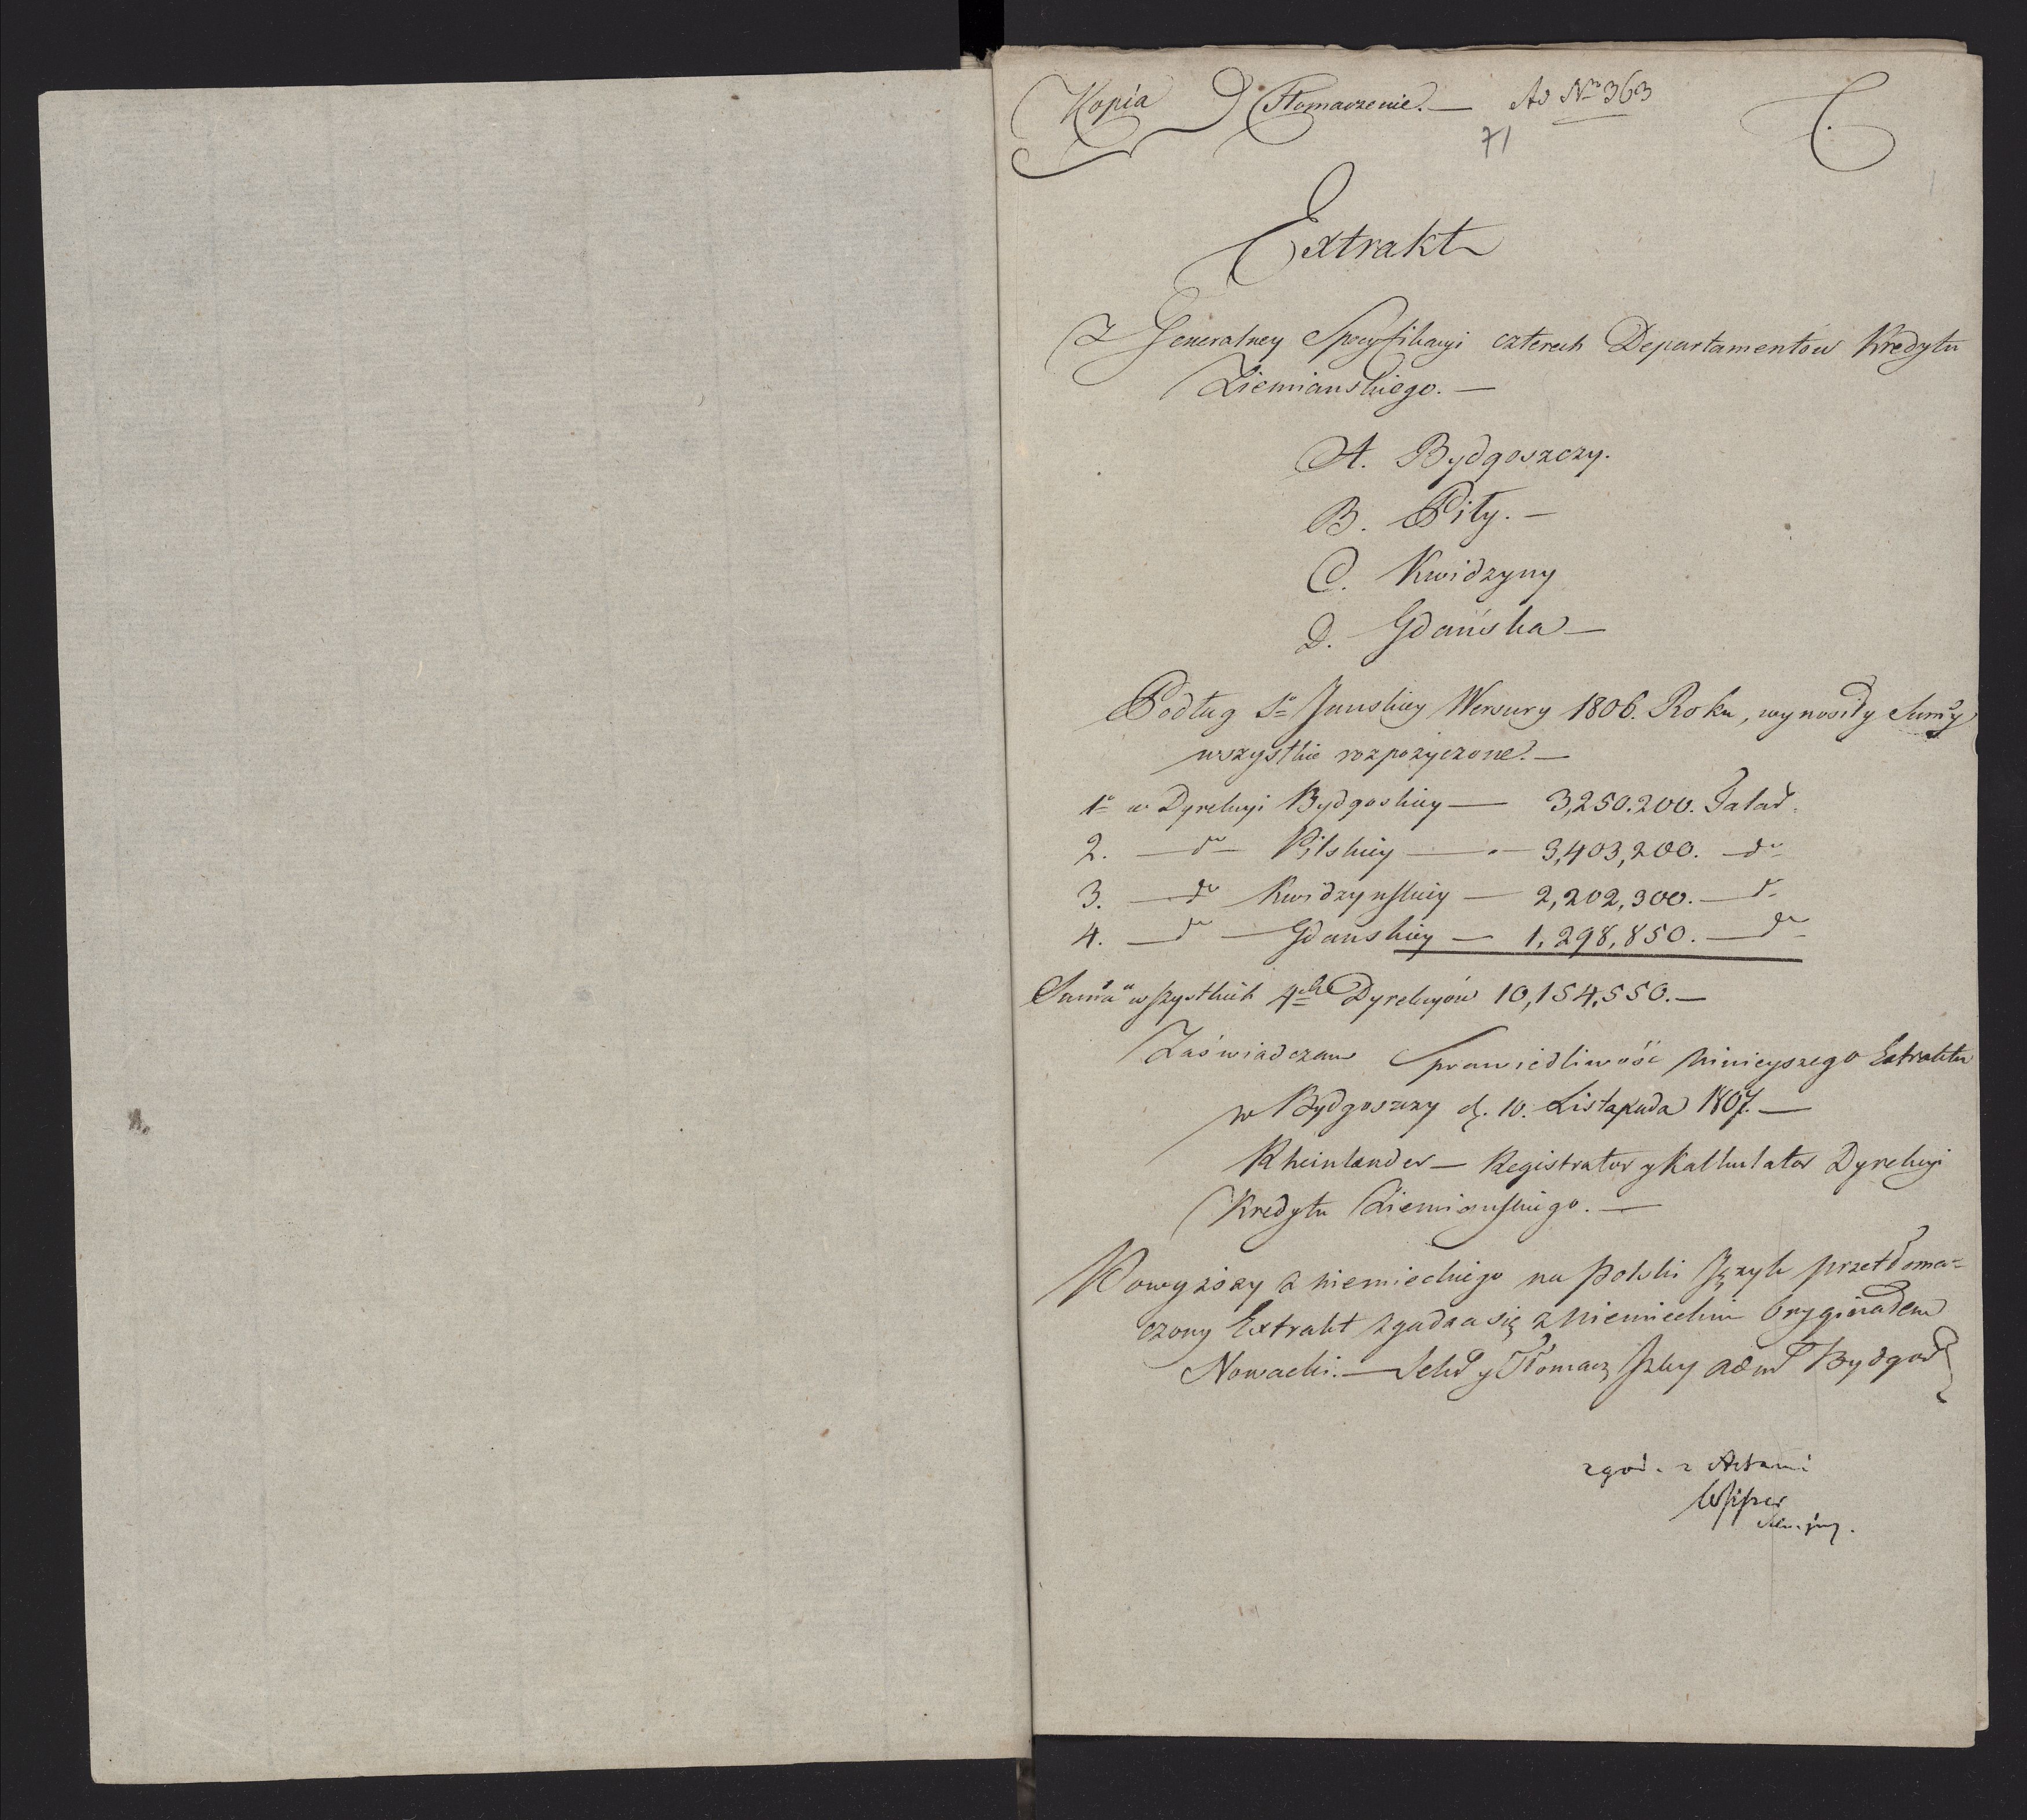 Kopia Tłomaczenie. — Ad Nro 363 C.
71
Extrakt
Z Generalney Specyfikacyi czterech Departamentow Kredytu
Ziemianskiego. —
A. Bydgoszczy.
B. Piły. —
C. Kwidzyny
D. Gdańska —
Podług So Janskiey Wersury 1806. Roku, wynosiły Summy
wszystkie rozpożyczone. —
1o w Dyrekcyi Bydgoskiey — 3,250.200. Talar.
2. — do — Pilskiey — 3,403,200. — do
3. — do Kwidzynskiey — 2,202,300. — do
4. — do — Gdanskiey — 1,298,850. — do
Summa wszystkich 4ch Dyrekcyów 10,154,550. —
Zaświadczam Sprawiedliwość ninieyszego Extraktu
w Bydgoszczy d. 10. Listapada 1807. —
Rheinlander — Registrator y Kalkulator Dyrekcyi
Kredytu Ziemianskiego. —
Powyższy z niemieckiego na polski Język przetłoma-
czony Extrakt zgadza się z niemieckim Oryginałem
Nowacki. — Sekr y Tłomacz Izby Adm Bydgos
zgod. z Aktami